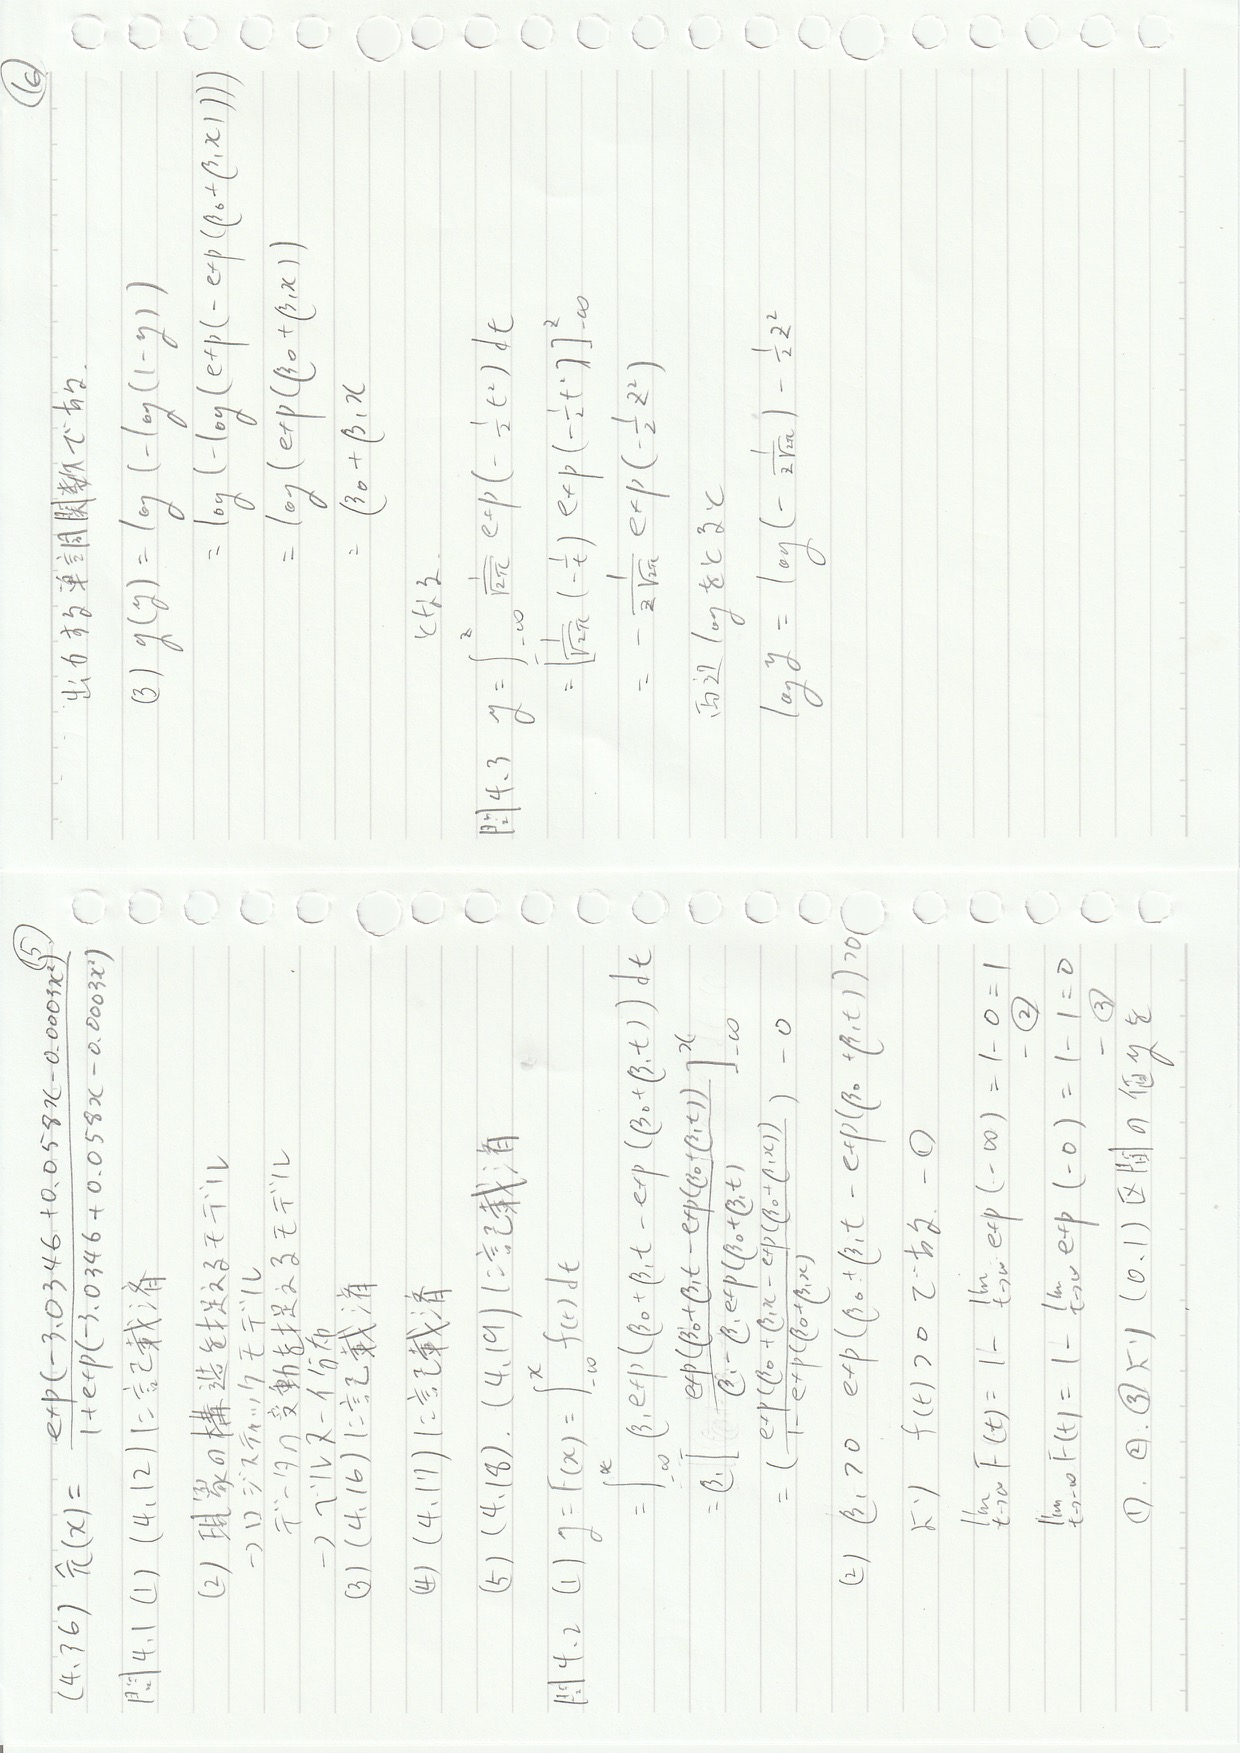 ⑮
(4.36) π̂(x) = exp(-3.0346 + 0.058x - 0.0003x²) / 1+exp(-3.0346 + 0.058x - 0.0003x²)
問4.1 (1) (4.12)に記載済
(2) 現象の構造を捉えるモデル
→ロジスティックモデル
データの変動を捉えるモデル
→ベルヌーイ分布
(3) (4.16)に記載済
(4) (4.17)に記載済
(5) (4.18). (4.19)に記載済
問4.2 (1) y = F(x) = ∫_{-∞}^{x} f(t) dt
= ∫_{-∞}^{x} β₁exp(β₀+β₁t - exp(β₀+β₁t)) dt
= β₁[ exp(β₀+β₁t - exp(β₀+β₁t)) / β₁ - β₁exp(β₀+β₁t) ]_{-∞}^{x}
= ( exp(β₀+β₁x - exp(β₀+β₁x)) / 1 - exp(β₀+β₁x) ) - 0
(2) β₁>0 exp(β₀+β₁t - exp(β₀+β₁t))>0
より f(t)>0 である. -①
lim_{t→∞} F(t) = 1 - lim_{t→∞} exp(-∞) = 1-0 = 1
-②
lim_{t→-∞} F(t) = 1 - lim_{t→∞} exp(-0) = 1-1 = 0
-③
①. ②. ③より (0.1)区間の値yを
⑯
出力する単調関数である.
(3) g(y) = log(-log(1-y))
= log(-log(exp(-exp(β₀+β₁x))))
= log(exp(β₀+β₁x))
= β₀+β₁x
となる.
問4.3 y = ∫_{-∞}^{z} 1/√2π exp(-1/2 t²) dt
= [1/√2π (-1/t) exp(-1/2 t²)]_{-∞}^{z}
= - 1/z√2π exp(-1/2 z²)
両辺logをとると
log y = log(- 1/z√2π) - 1/2 z²